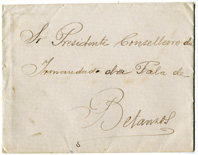 Sr Presidente Consellero da
Irmandade da Fala de
Betanzos